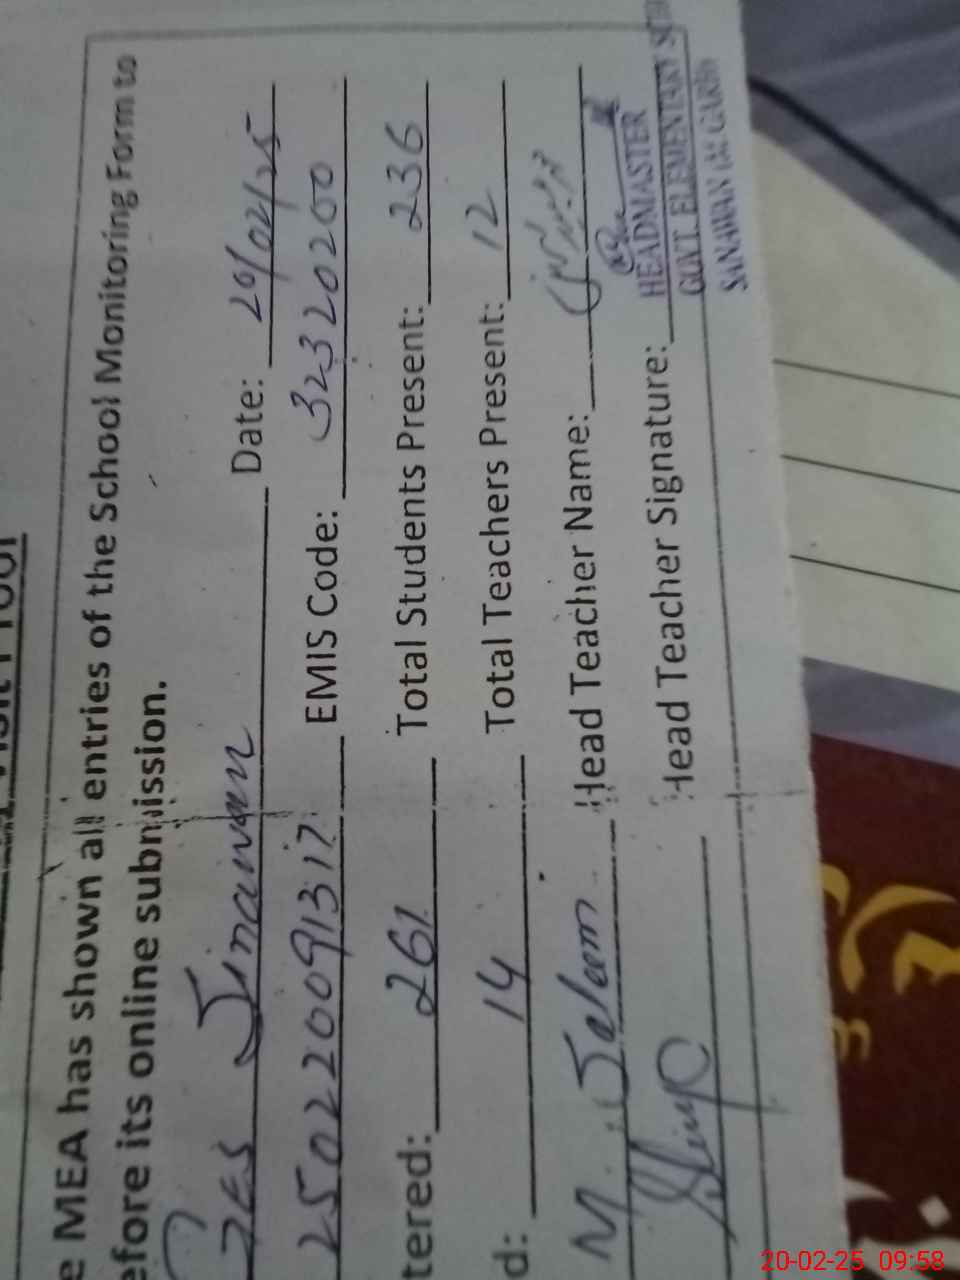 e MEA has shown all entries of the School Monitoring Form to
efore its online submission.
GES Sinawan Date: 20/02/25
250220091317 EMIS Code: 32320200
tered: 261 Total Students Present: 236
d: 14 Total Teachers Present: 12
M. Saleem Head Teacher Name:
Head Teacher Signature:
HEADMASTER
GOVT. ELEMENTARY
20-02-25 09:58